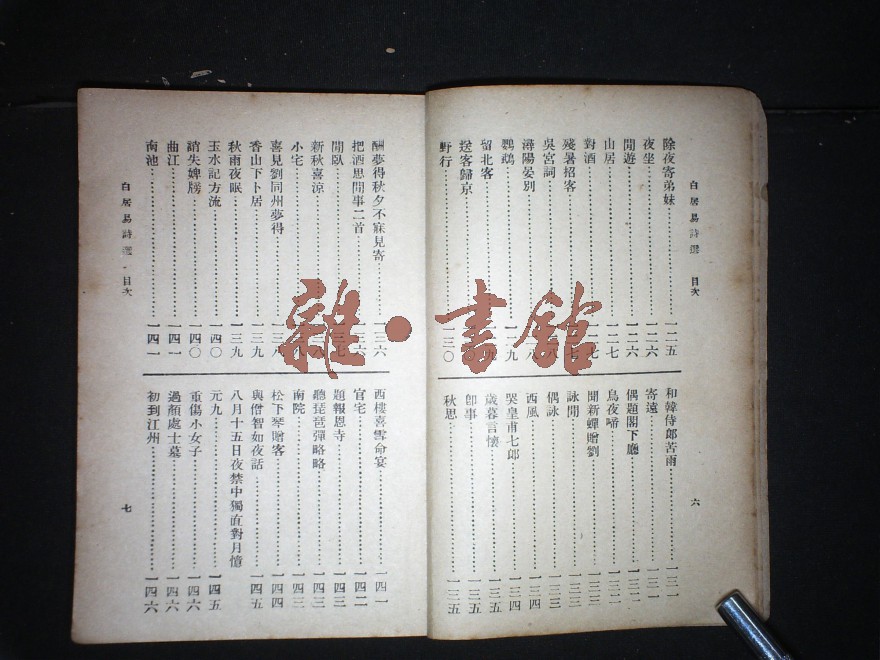 白居易詩選 目次
除夜寄弟妹……一二五
夜坐……一二六
閒遊……一二六
山居……一二七
對酒
殘暑招客
吳宮詞
潯陽宴別
鸚鵡……一二九
留北客
送客歸京
野行……一三〇
和韓侍郎苦雨……一三一
寄遠……一三一
偶題閣下廳……一三二
烏夜啼……一三二
聞新蟬贈劉
詠閒……一三三
偶詠……一三三
西風……一三四
哭皇甫七郎……一三四
歲暮言懷……一三五
卽事……一三五
秋思……一三五
六
白居易詩選·目次
酬夢得秋夕不寐見寄……一三六
把酒思閒事二首
閒臥
新秋喜涼
小宅
喜見劉同州夢得……一三八
香山下卜居……一三九
秋雨夜眠……一三九
玉水記方流……一四〇
誚失婢牓……一四〇
曲江……一四一
南池……一四一
西樓喜雪命宴……一四一
官宅……一四二
題報恩寺……一四二
聽琵琶彈略略……一四三
南院……一四三
松下琴贈客……一四四
與僧智如夜話……一四五
八月十五日夜禁中獨直對月憶
元九……一四五
重傷小女子……一四六
過顏處士墓……一四六
初到江州……一四六
七
雜·書館